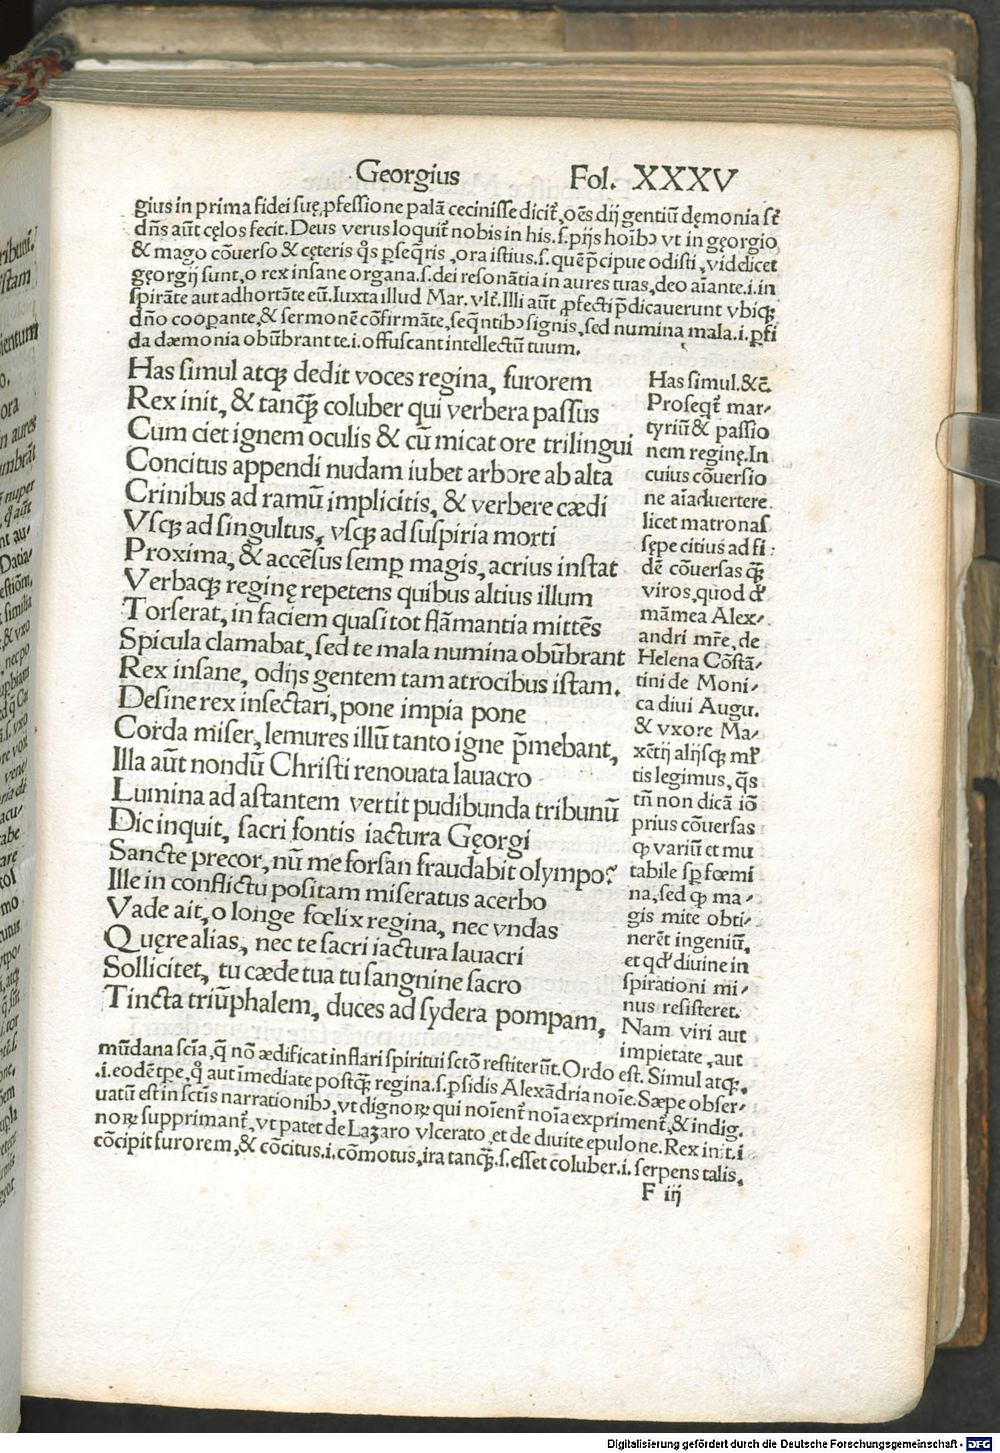 Georgius Fol. XXXV
gius in prima fidei suę ꝓfessione palã cecinisse dicit᷑, oẽs dij gentiũ dęmonia st᷑
dñs aũt cęlos fecit. Deus verus loquit᷑ nobis in his .s. pijs hoĩbꝰ vt in gęorgio
& mago cõuerso & cęteris q̃s ꝑseq̃ris, ora istius .s. quẽ p̃cipue odisti, videlicet
gęorgij sunt, o rex insane organa .s. dei resonãtia in aures tuas, deo aĩante .i. in
spirãte aut adhortãte eũ. Iuxta illud Mar. vlt᷑. Illi aũt ꝓfecti p̃dicauerunt vbiq;
dño cooꝑante, & sermonẽ cõfirmãte, seq̃ntibꝰ signis, sed numina mala .i. ꝑfi
da dæmonia obũbrant te .i. offuscant intellectũ tuum.
Has simul atq; dedit voces regina, furorem
Rex init, & tanq̃; coluber qui verbera passus
Cum ciet ignem oculis & cũ micat ore trilingui
Concitus appendi nudam iubet arbore ab alta
Crinibus ad ramũ implicitis, & verbere cædi
Vsq; ad singultus, vsq; ad suspiria morti
Proxima, & accẽsus semꝑ magis, acrius instat
Verbaq; reginę repetens quibus altius illum
Torserat, in faciem quasi tot flãmantia mittẽs
Spicula clamabat, sed te mala numina obũbrant
Rex insane, odijs gentem tam atrocibus istam.
Desine rex insectari, pone impia pone
Corda miser, lemures illũ tanto igne p̃mebant,
Illa aũt nondũ Christi renouata lauacro
Lumina ad astantem vertit pudibunda tribunũ
Dic inquit, sacri fontis iactura Gęorgi
Sancte precor, nũ me forsan fraudabit olympo?
Ille in conflictu positam miseratus acerbo
Vade ait, o longe fœlix regina, nec vndas
Quęre alias, nec te sacri iactura lauacri
Sollicitet, tu cæde tua tu sangnine sacro
Tincta triũphalem, duces ad sydera pompam,
Has simul .&c̃.
Proseqt᷑ mar-
tyriũ & passio
nem reginę. In
cuius cõuersio
ne aĩaduertere
licet matronas
sępe citius ad fi-
dẽ cõuersas q̃;
viros, quod đ
mãmea Alex-
andri mr̃e, de
Helena Cõstã-
tini de Moni-
ca diui Augu.
& vxore Ma-
xẽtij alijsq; ml᷑
tis legimus, q̃s
tñ non dicã iõ
prius cõuersas
ꝙ variũ et mu
tabile sꝑ fœmi
na, sed ꝙ ma-
gis mite obti-
nerẽt ingeniũ,
et qđ diuine in
spirationi mi-
nus resisteret.
Nam viri aut
impietate, aut
mũdana scĩa, q̃ nõ ædificat inflari spiritui sctõ restiterũt. Ordo est. Simul atq;,
.i. eodẽ tꝑe, q̊ aut ĩmediate postq̃; regina .s. ꝑsidis Alexãdria noĩe. Sæpe obser-
uatũ est in sctĩs narrationibꝰ, vt dignoꝝ qui noĩent᷑ noĩa expriment᷑, & indig.
noꝝ supprimant᷑, vt patet de Lazaro vlcerato, et de diuite epulone. Rex init .i
cõcipit furorem, & cõcitus .i. cõmotus, ira tanq̃; .s. esset coluber .i. serpens talis,
F iij
Digitalisierung gefördert durch die Deutsche Forschungsgemeinschaft - DFG